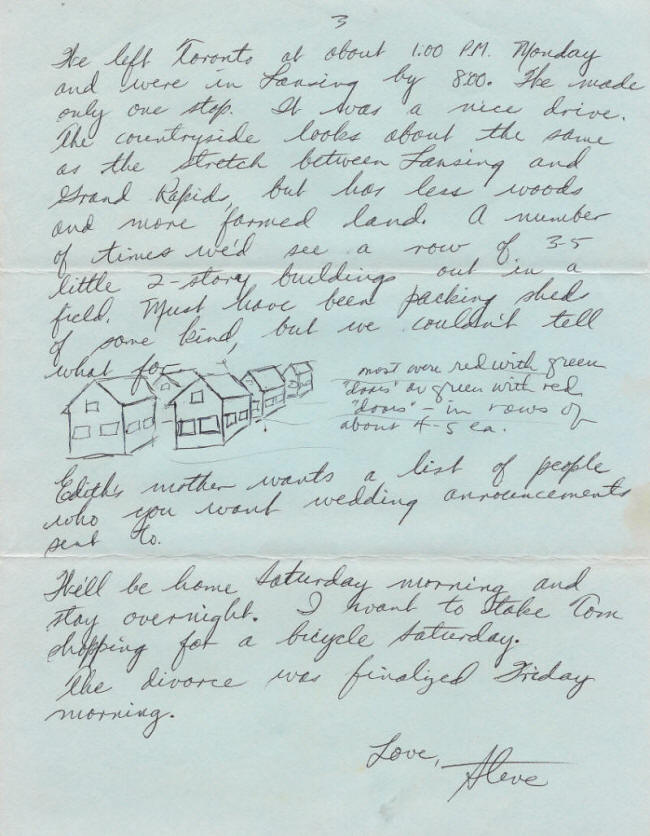 3
We left Toronto at about 1:00 P.M. Monday
and were in Lansing by 8:00. We made
only one stop. It was a nice drive.
The countryside looks about the same
as the stretch between Lansing and
Grand Rapids, but has less woods
and more farmed land. A number
of times we'd see a row of 3-5
little 2-story buildings out in a
field. Must have been packing sheds
of some kind, but we couldn't tell
what for.
most were red with green
"doors" or green with red
"doors" - in rows of
about 4-5 ea.
Edith's mother wants a list of people
who you want wedding announcements
sent to.
We'll be home Saturday morning and
stay overnight. I want to take Tom
shopping for a bicycle Saturday.
The divorce was finalized Friday
morning.
Love,
Steve